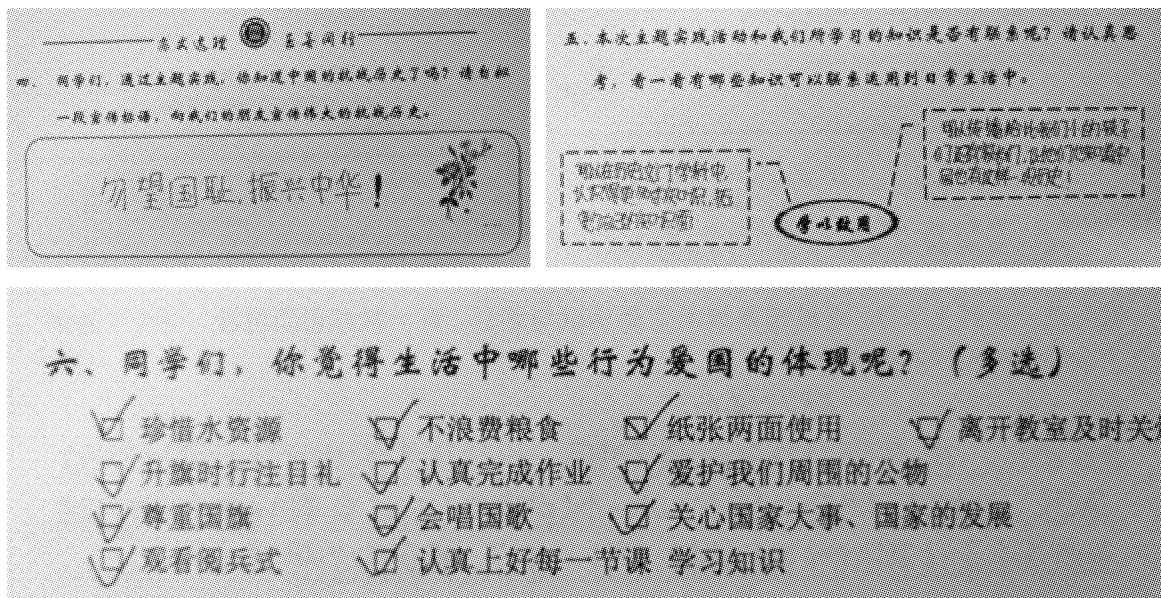 至善同行
四、 同学们，通过主题实践，你知道中国的抗战历史了吗？请自拟
一段宣传标语，向我们的朋友宣传伟大的抗战历史。
勿望国耻，振兴中华！
五．本次主题实践活动和我们所学习的知识是否有联系呢？请认真思
考，看一看有哪些知识可以联系运用到日常生活中。
可以传播给比我们小的孩子
可以在历史这门学科中，
学以致用
六、同学们，你觉得生活中哪些行为爱国的体现呢？（多选）
珍惜水资源 不浪费粮食 纸张两面使用 离开教室及时关
升旗时行注目礼 认真完成作业 爱护我们周围的公物
尊重国旗 会唱国歌 关心国家大事、国家的发展
观看阅兵式 认真上好每一节课 学习知识